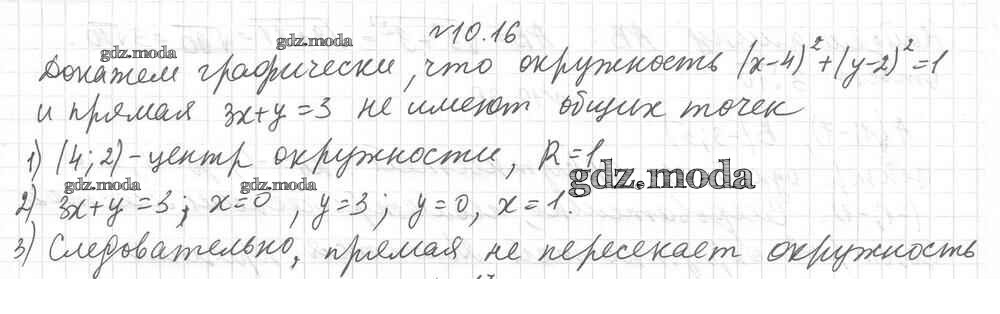 №10.16
gdz.moda gdz.moda
Докажем графически, что окружность (x-4)²+(y-2)²=1
и прямая 3x+y=3 не имеют общих точек
1) (4;2)-центр окружности, R=1
gdz.moda gdz.moda gdz.moda
2) 3x+y=3; x=0, y=3; y=0, x=1.
3) Следовательно, прямая не пересекает окружность